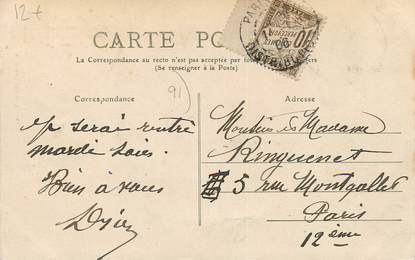 12+
CARTE PO
La Correspondance au recto n'est pas acceptée par tou
(Se renseigner à la Poste)
PARIS
DISTRIBU
10
Correspondance
91
Adresse
Je serai rentré
mardi soir.
Bien à vous
Monsieur & Madame
Ringuenet
5 rue Montgallet
Paris
12ème